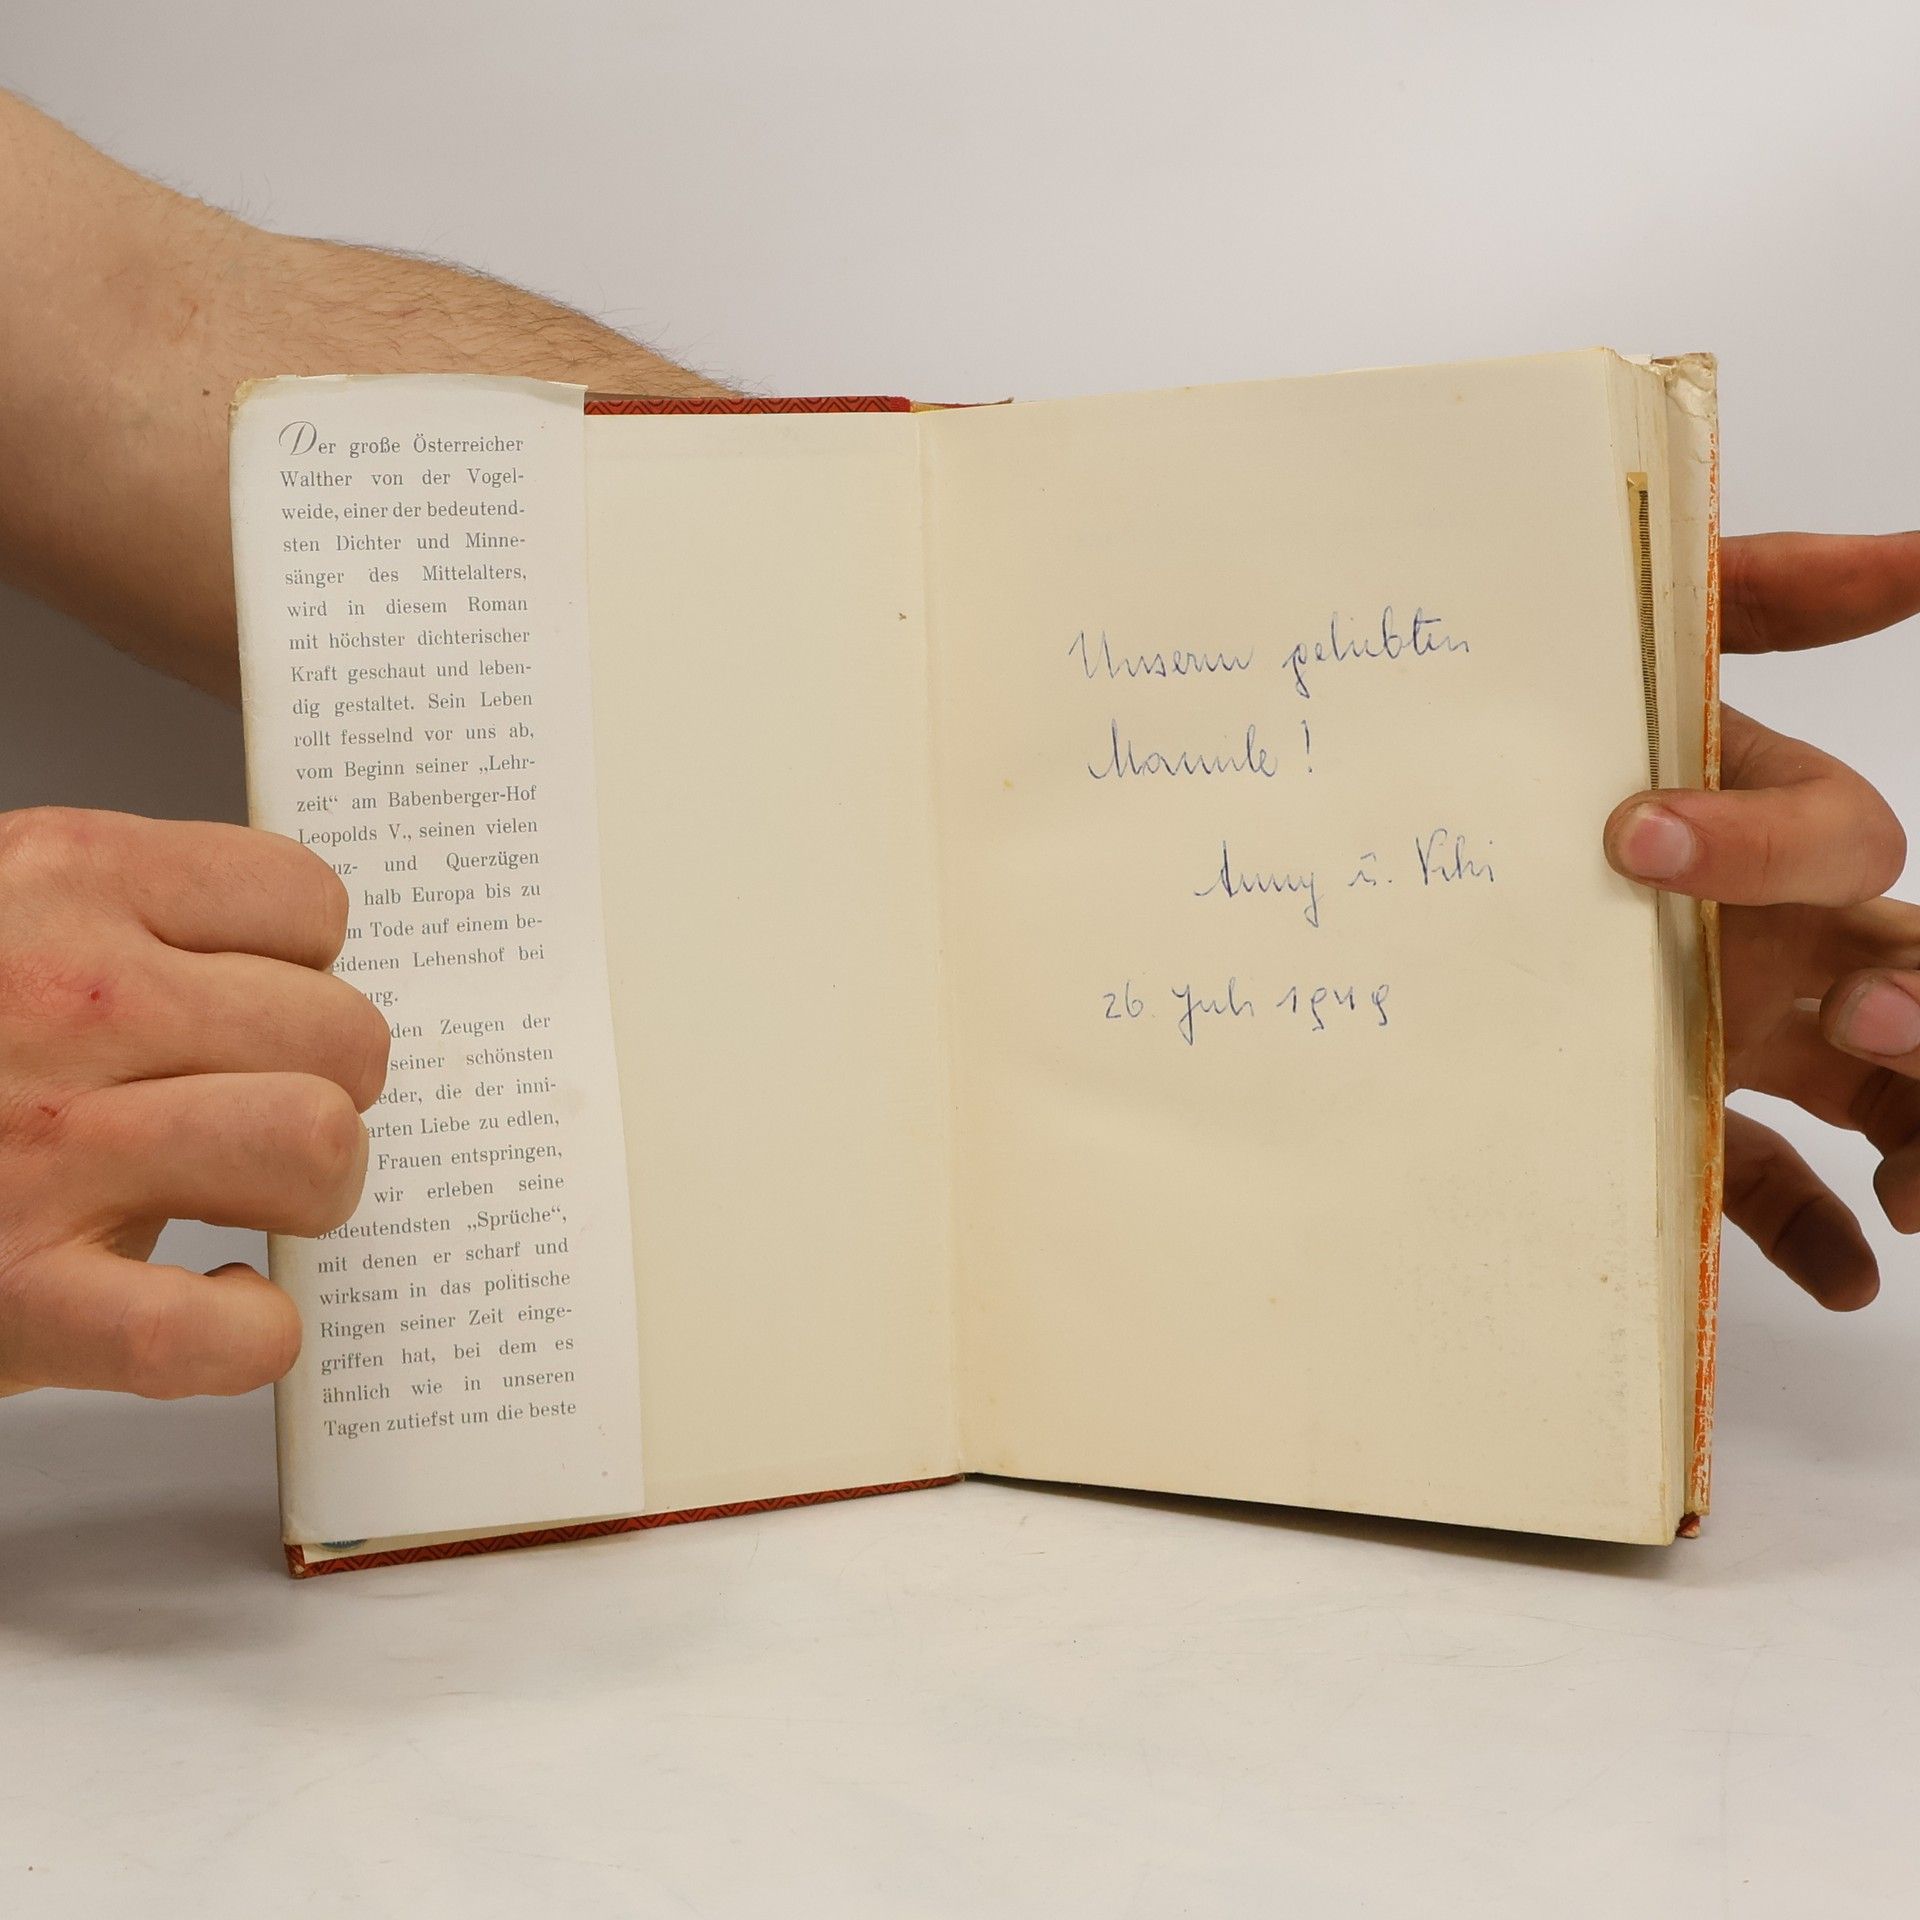 Der große Österreicher
Walther von der Vogel-
weide, einer der bedeutend-
sten Dichter und Minne-
sänger des Mittelalters,
wird in diesem Roman
mit höchster dichterischer
Kraft geschaut und leben-
dig gestaltet. Sein Leben
rollt fesselnd vor uns ab,
vom Beginn seiner „Lehr-
zeit“ am Babenberger-Hof
Leopolds V., seinen vielen
uz- und Querzügen
halb Europa bis zu
m Tode auf einem be-
eidenen Lehenshof bei
urg.
den Zeugen der
seiner schönsten
eder, die der inni-
arten Liebe zu edlen,
Frauen entspringen,
wir erleben seine
bedeutendsten „Sprüche“,
mit denen er scharf und
wirksam in das politische
Ringen seiner Zeit einge-
griffen hat, bei dem es
ähnlich wie in unseren
Tagen zutiefst um die beste
Unserm geliebten
Mamile!
Anny u. Viki
26. Juli 1949